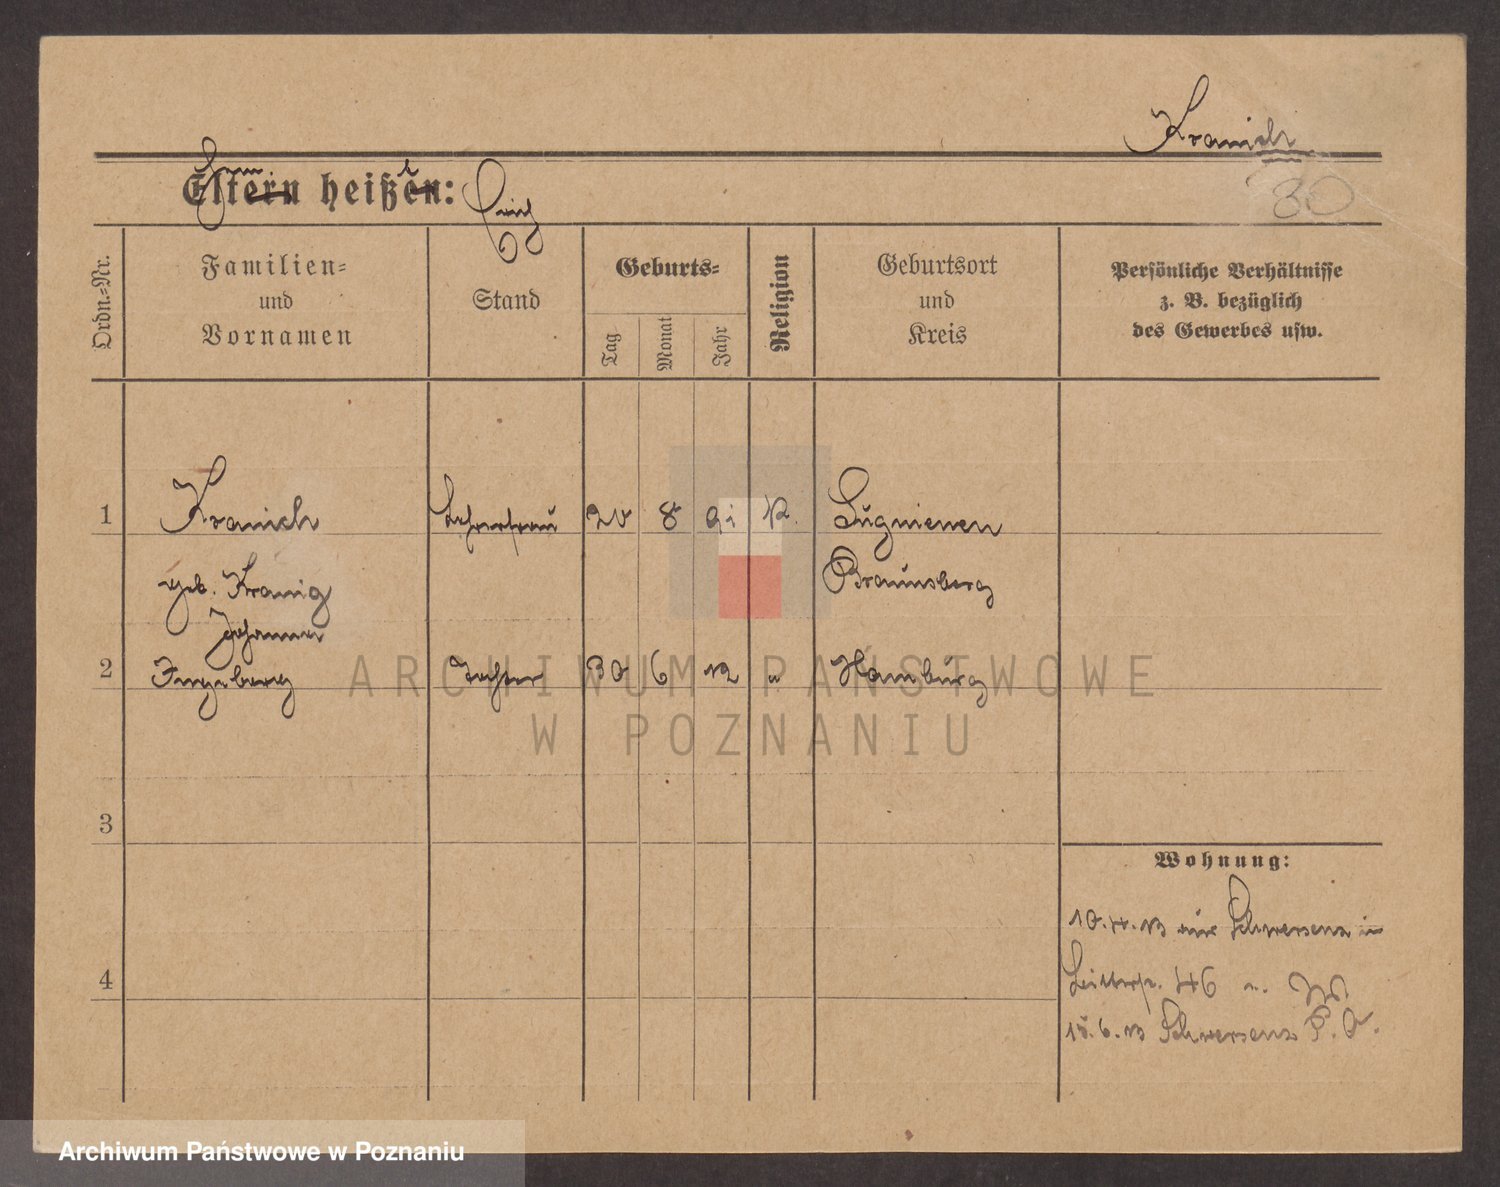 Kranich
80
Eltern heißen:
Ordn.-Nr.
Familien-
und
Vornamen
Stand
Geburts-
Tag
Monat
Jahr
Religion
Geburtsort
und
Kreis
Persönliche Verhältnisse
z. B. bezüglich
des Gewerbes usw.
1 Kranich Lehrerfrau 20 8 91 K. Lugnienen
geb. Kranig Braunsberg
Johanna
2 Ingeberg Tochter 30 6 12 " Hamburg
3
4
Wohnung:
10.4.13 aus Schwersenz in
46
15.6.13 Schwersenz
ARCHIWUM PAŃSTWOWE
W POZNANIU
Archiwum Państwowe w Poznaniu